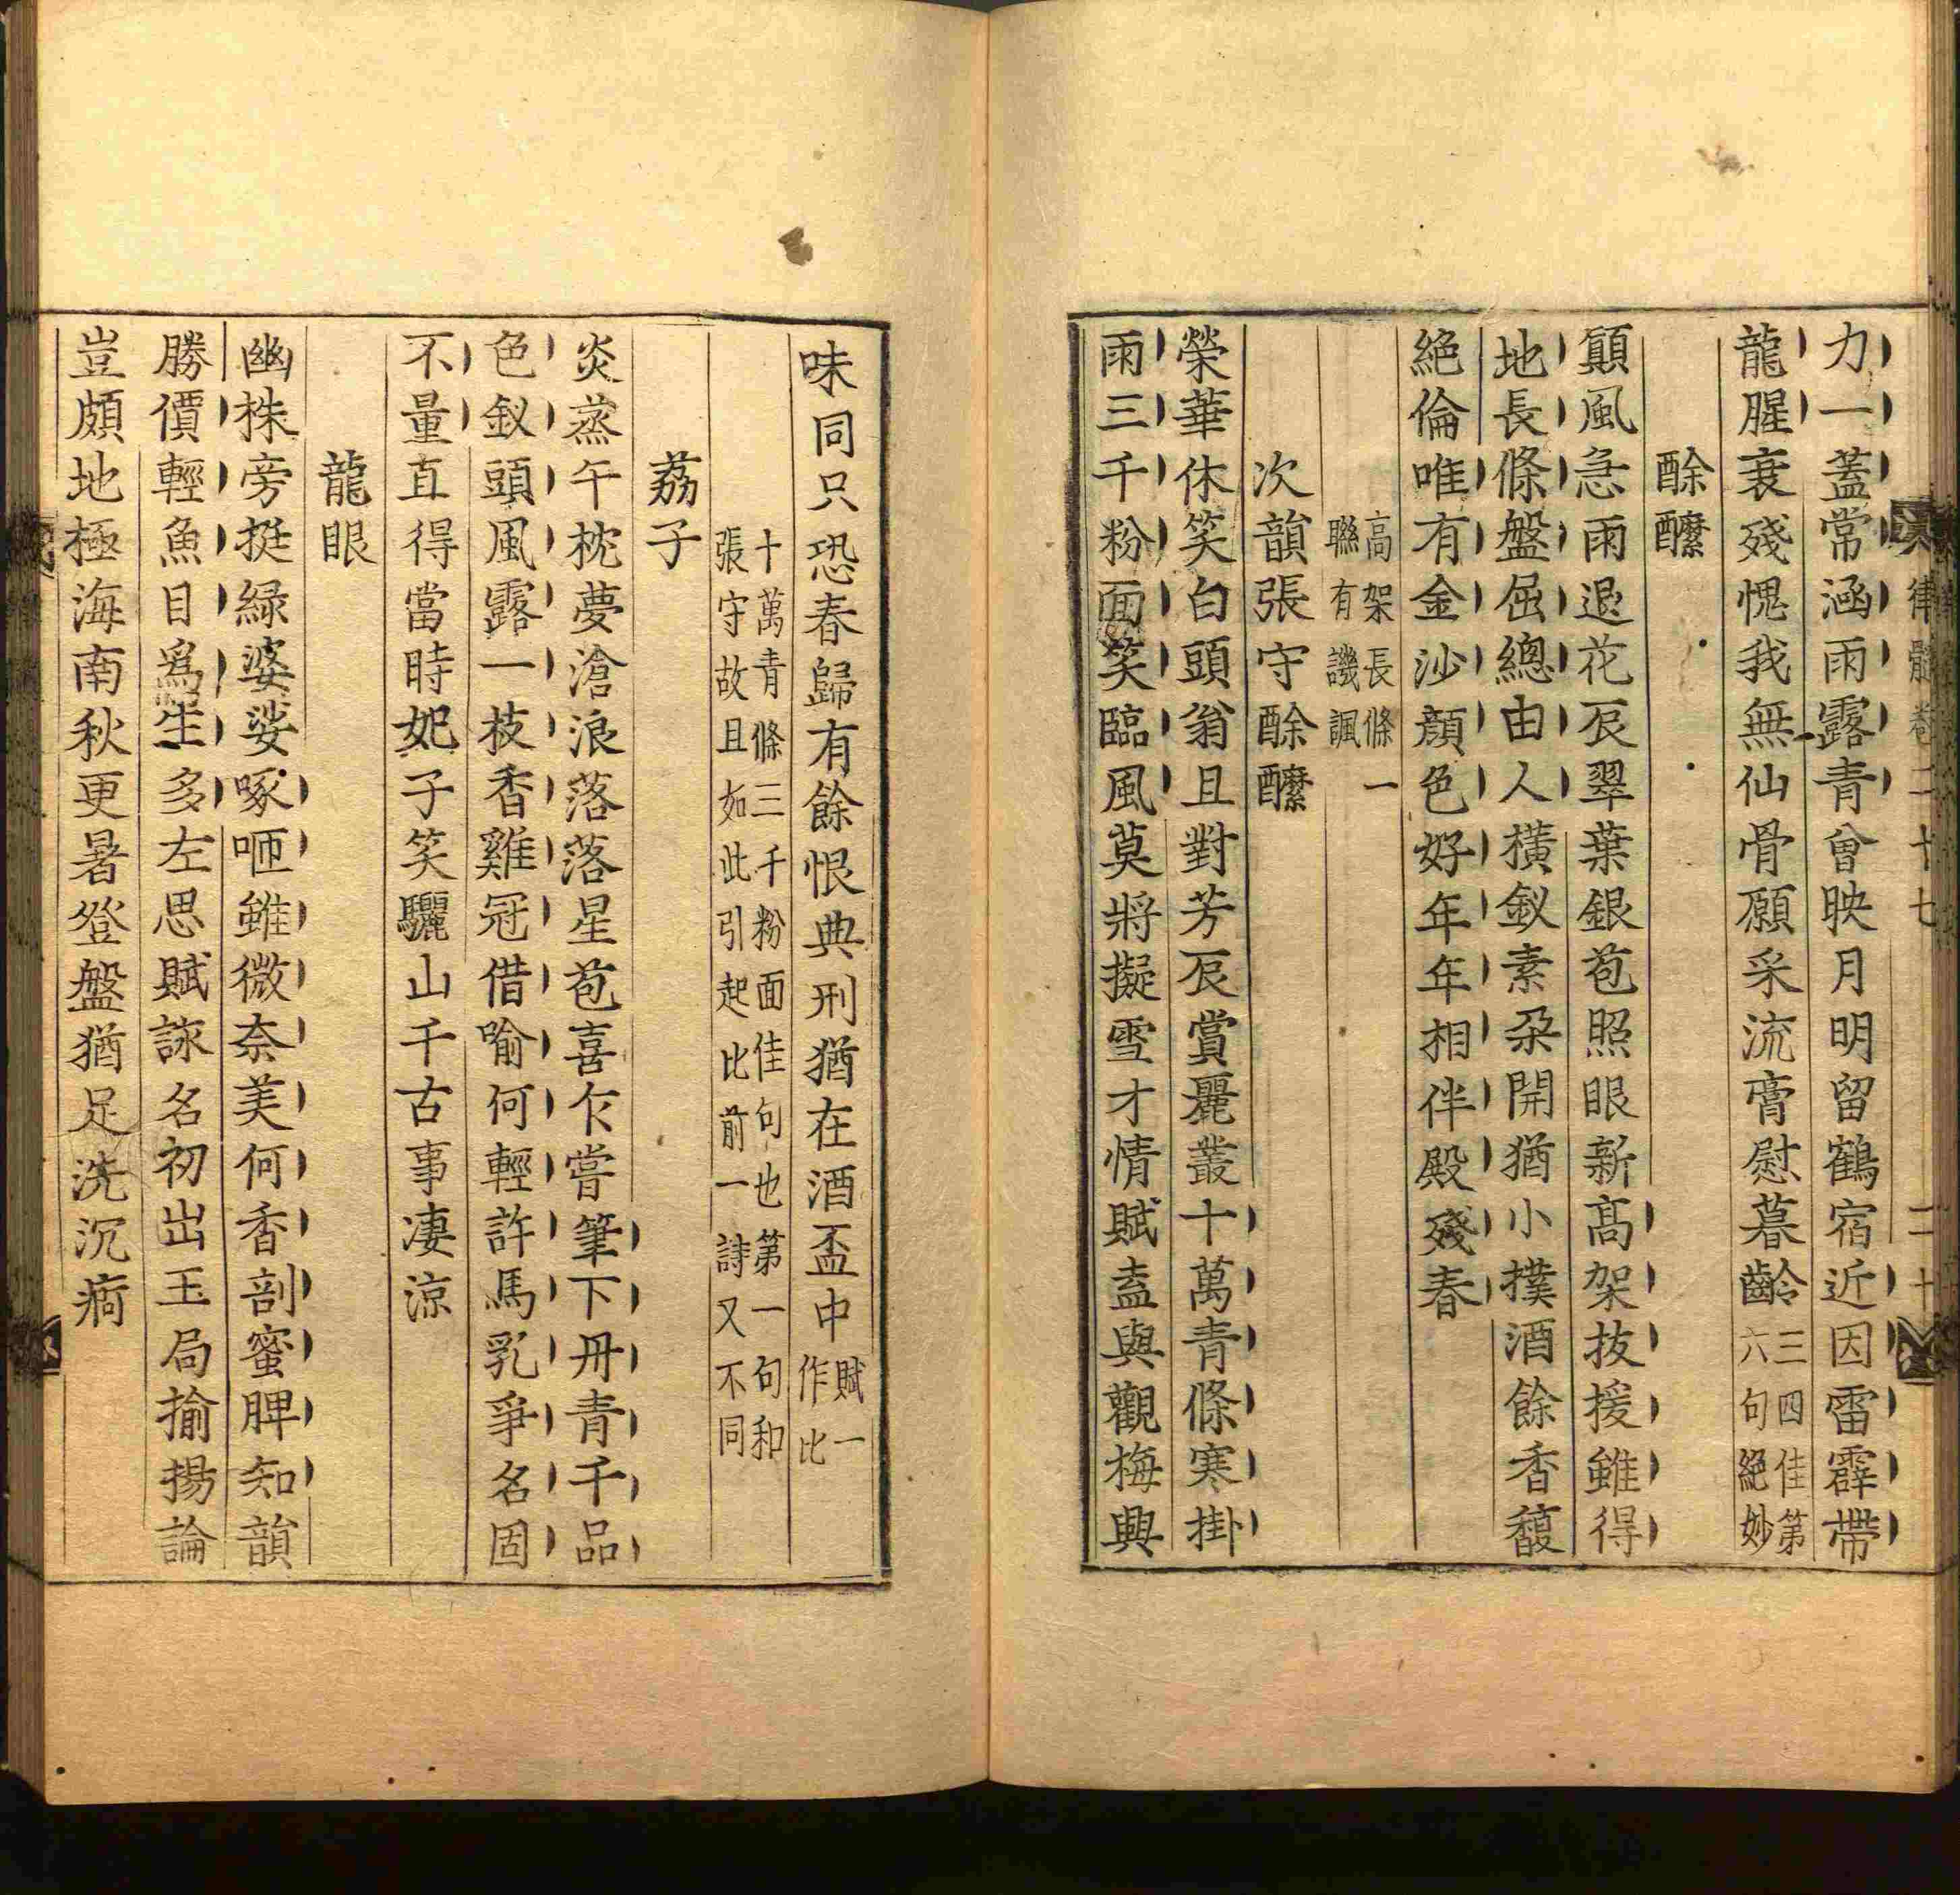 律髓卷二十七 二十
力一蓋常涵雨露青會映月明留鶴宿近因雷霹帶
龍腥衰殘愧我無仙骨願采流膏慰暮齡三四佳第六句絕妙
酴醾
顛風急雨退花辰翠葉銀苞照眼新高架抜援雖得
地長條盤屈總由人橫釵素朶開猶小撲酒餘香馥
絕倫唯有金沙顏色好年年相伴殿殘春
高架長條一聯有譏諷
次韻張守酴醾
榮華休笑白頭翁且對芳辰賞麗叢十萬青條寒掛
雨三千粉面笑臨風莫將擬雪才情賦盍與觀梅興
味同只恐春歸有餘恨典刑猶在酒盃中賦一作比
十萬青條三千粉面佳句也第一句和張守故且如此引起比前一詩又不同
荔子
炎蒸午枕夢滄浪落落星苞喜乍嘗筆下丹青千品
色釵頭風露一枝香雞冠借喻何輕許馬乳爭名固
不量直得當時妃子笑驪山千古事凄涼
龍眼
幽株旁挺綠婆娑啄咂雖微奈美何香剖蜜脾知韻
勝價輕魚目爲生多左思賦詠名初出玉局揄揚論
豈頗地極海南秋更暑登盤猶足洗沉痾